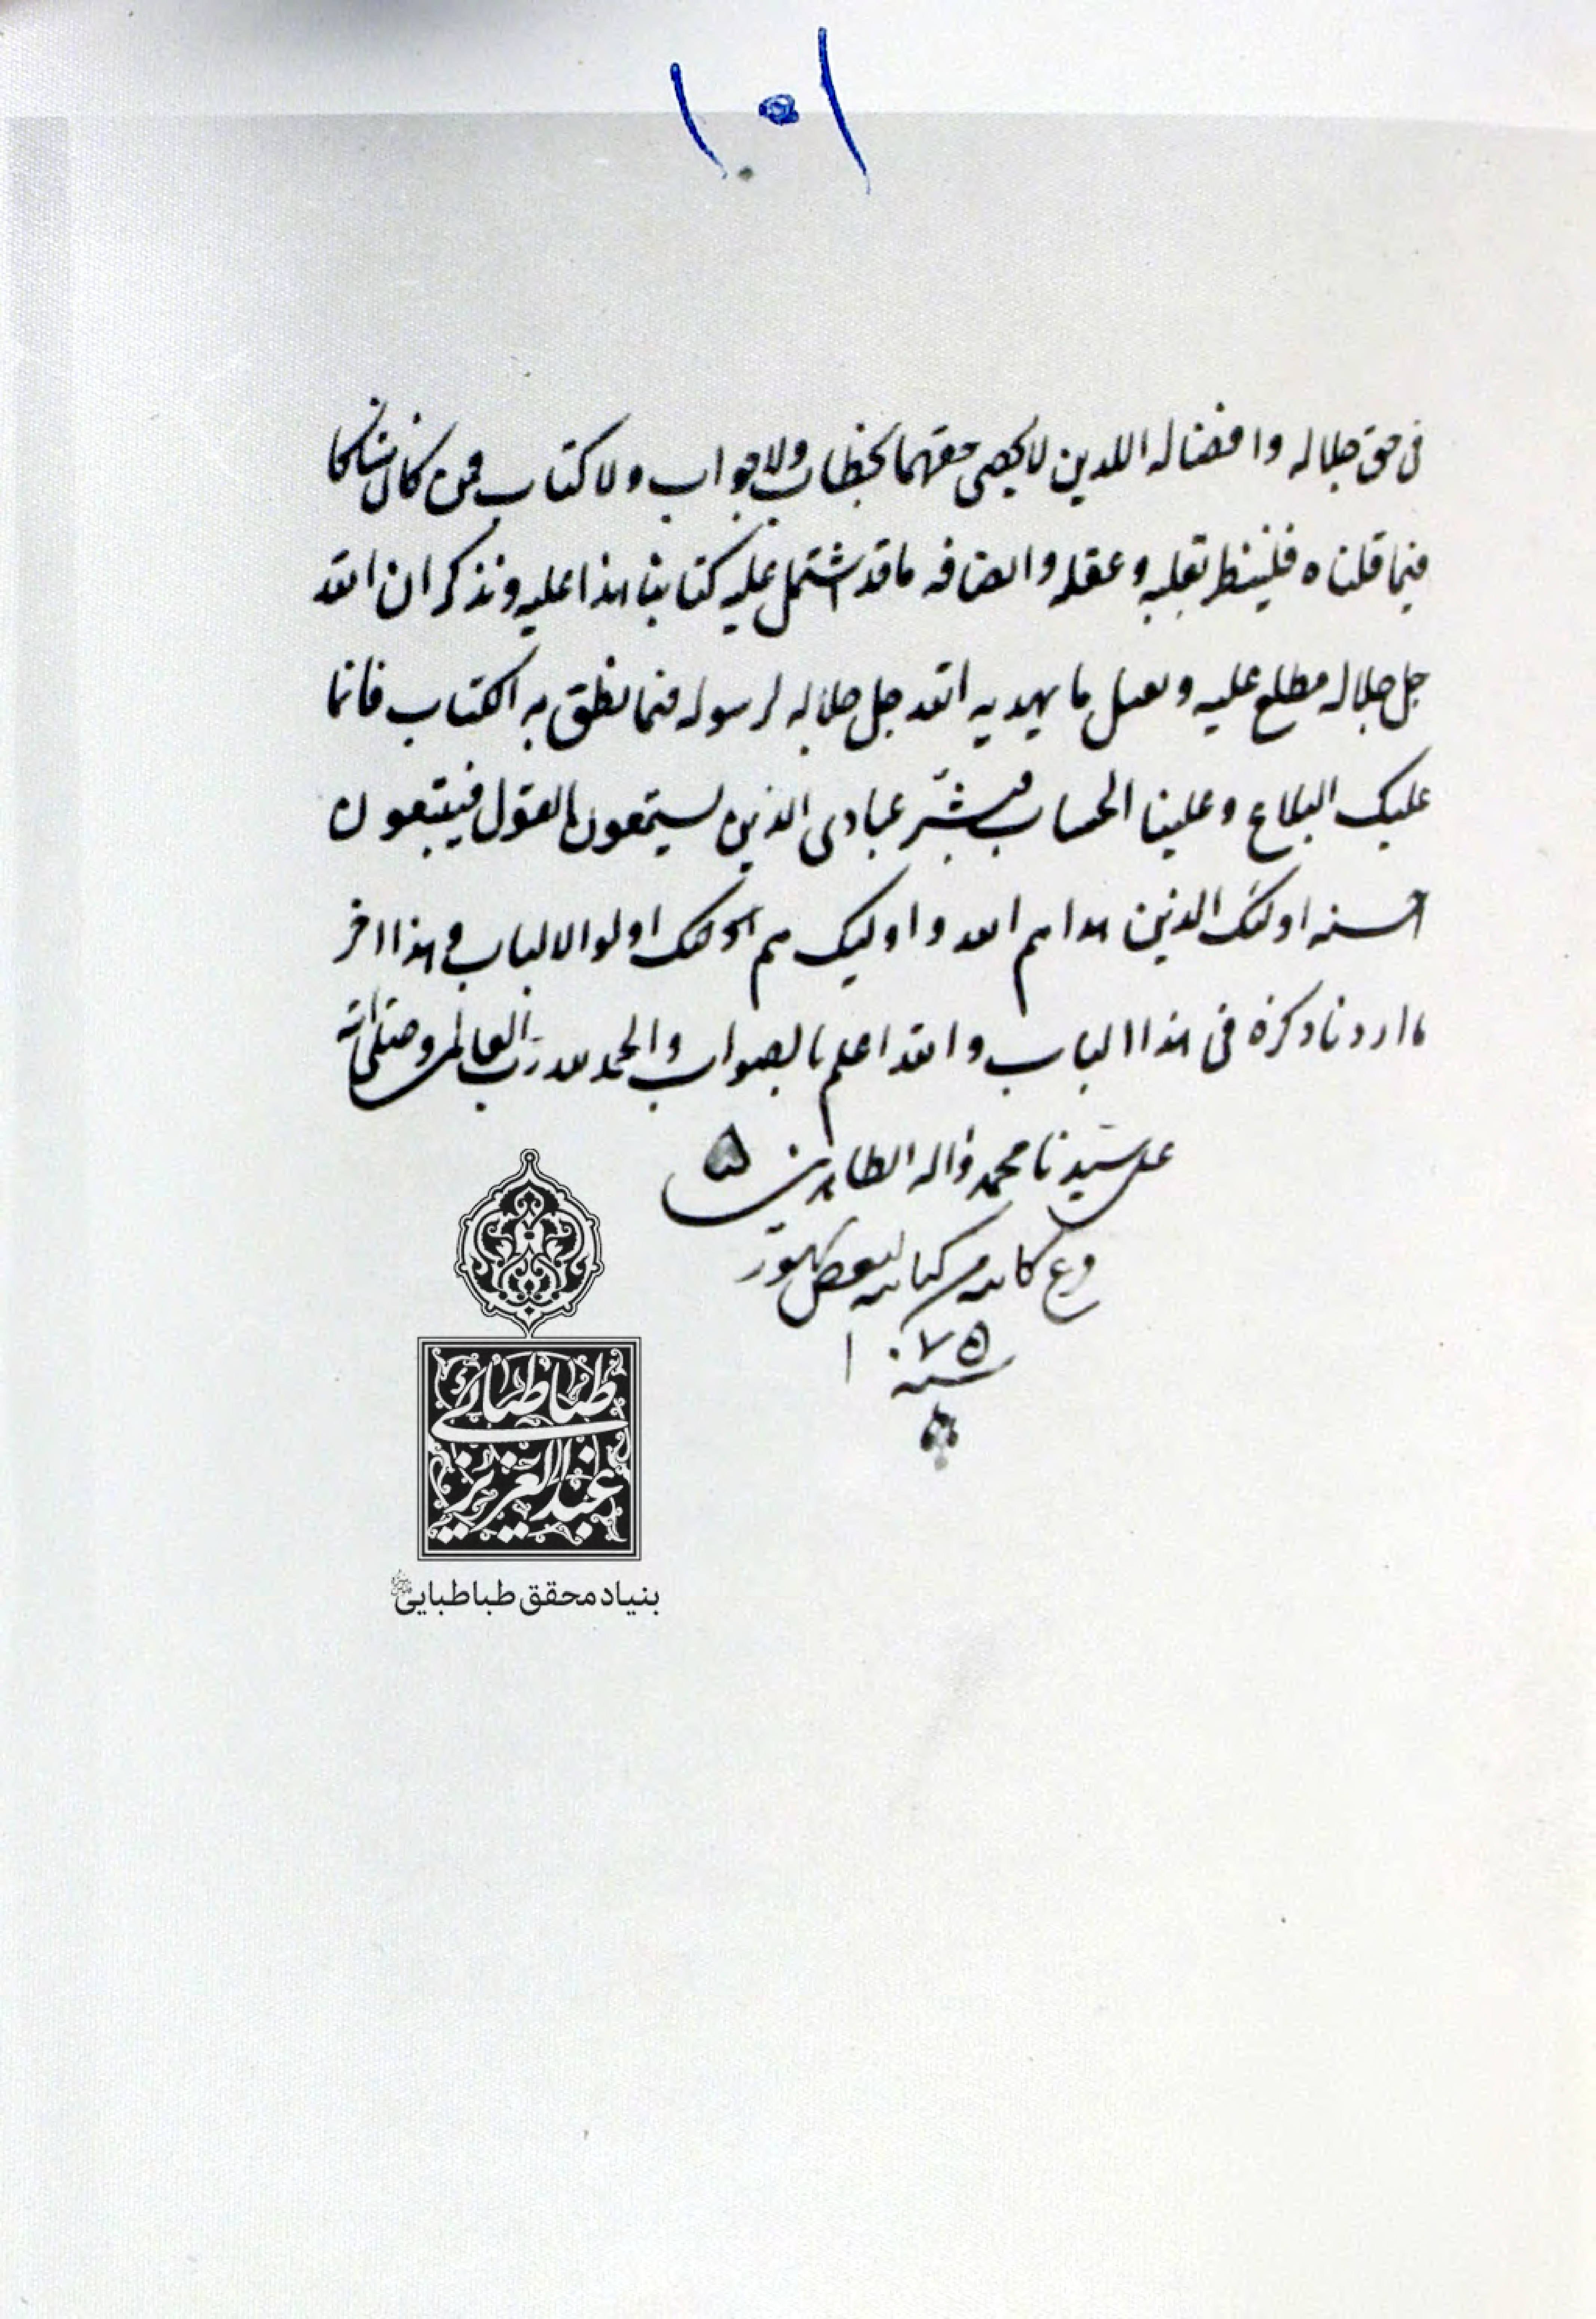 ١٥١
فی حق جلاله وافضاله اللدين لا يحصى حقهما بخطاب ولا جواب ولا كتاب فمن كان شاكا
فيما قلناه فلينظر بقلبه وعقله وانصافه ما قد اشتمل عليه كتابنا هذا عليه ونذكر ان الله
جل جلاله مطلع عليه ويعمل ما يهديه الله جل جلاله لرسوله فيما نطق به الكتاب فانما
عليك البلاغ وعلينا الحساب فبشّر عبادى الذين يستمعون القول فيتبعون
احسنه اولئك الذين هداهم الله واوليك هم اولئك اولوا الالباب و هذا اخر
ما اردنا ذكره فى هذا الباب والله اعلم بالصواب والحمد لله رب العالمين وصلى الله
على سيدنا محمد واله الطاهرين ۵
كاتبه من كتابته
سنه ١٠٧۵
طباطبائی
عبدالعزیز
بنیاد محقق طباطبایی